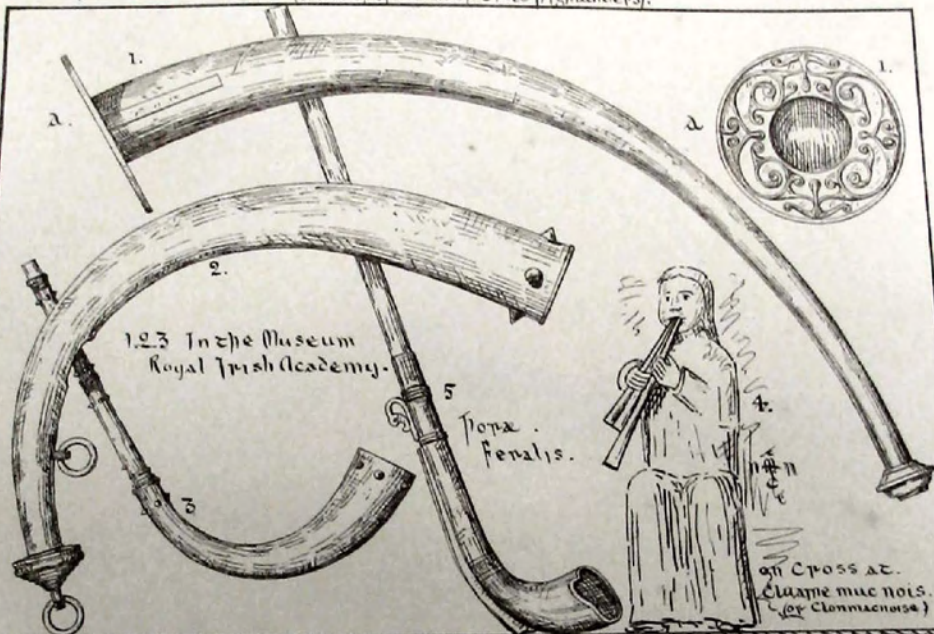 1.
a.
1.
a
2.
1.2.3 In the Museum
Royal Irish Academy.
5
Fera-
feralis.
4.
3
on Cross at.
Cluaine muc nois.
(or Clonmacnoise)